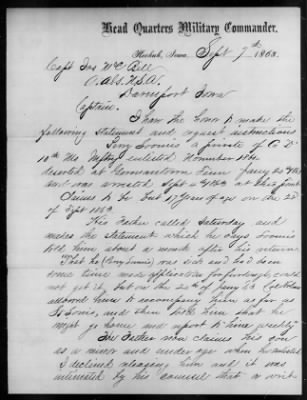 Head Quarters Military Commander.
Keokuk, Iowa, Sept 7th 1863.
Capt Jas Mc Bell
A.A.G. U.S.A.
Davenport Iowa
Captain.
I have the honor to make the
following statement and request instructions
Perry Loomis a private of Co D
10th Mo Infty enlisted November 1861
deserted at Germantown Tenn Jany
and was arrested Sept 4 1863 at this point
Claims to be but 17 years of age on the 22d
of Sept 1863
His Father called Saturday and
makes the statement which he says Loomis
told him about a month after his return
That he (Perry Loomis) was sick and had been
some time made application for furlough could
not get it, but on the 20th of Jany 63
allowed him to accompany him as far as
St Louis, and then told him that he
might go home and report to him weekly
His Father now claims his son
as a minor and under age when he enlisted
I declined releasing him and it was
intimated by his council that a writ